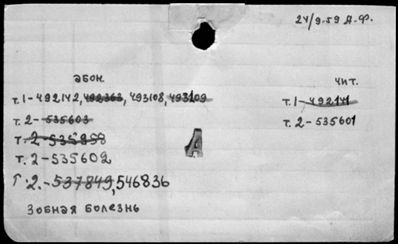 24/9-59 А.Ф.
абон.
чит.
т.1-492142, 492363, 493108, 493109
т.1-492141
т.2-535603
т.2-535601
т.2-535858
т.2-535602
т.2.-537849, 546836
Зобная болезнь